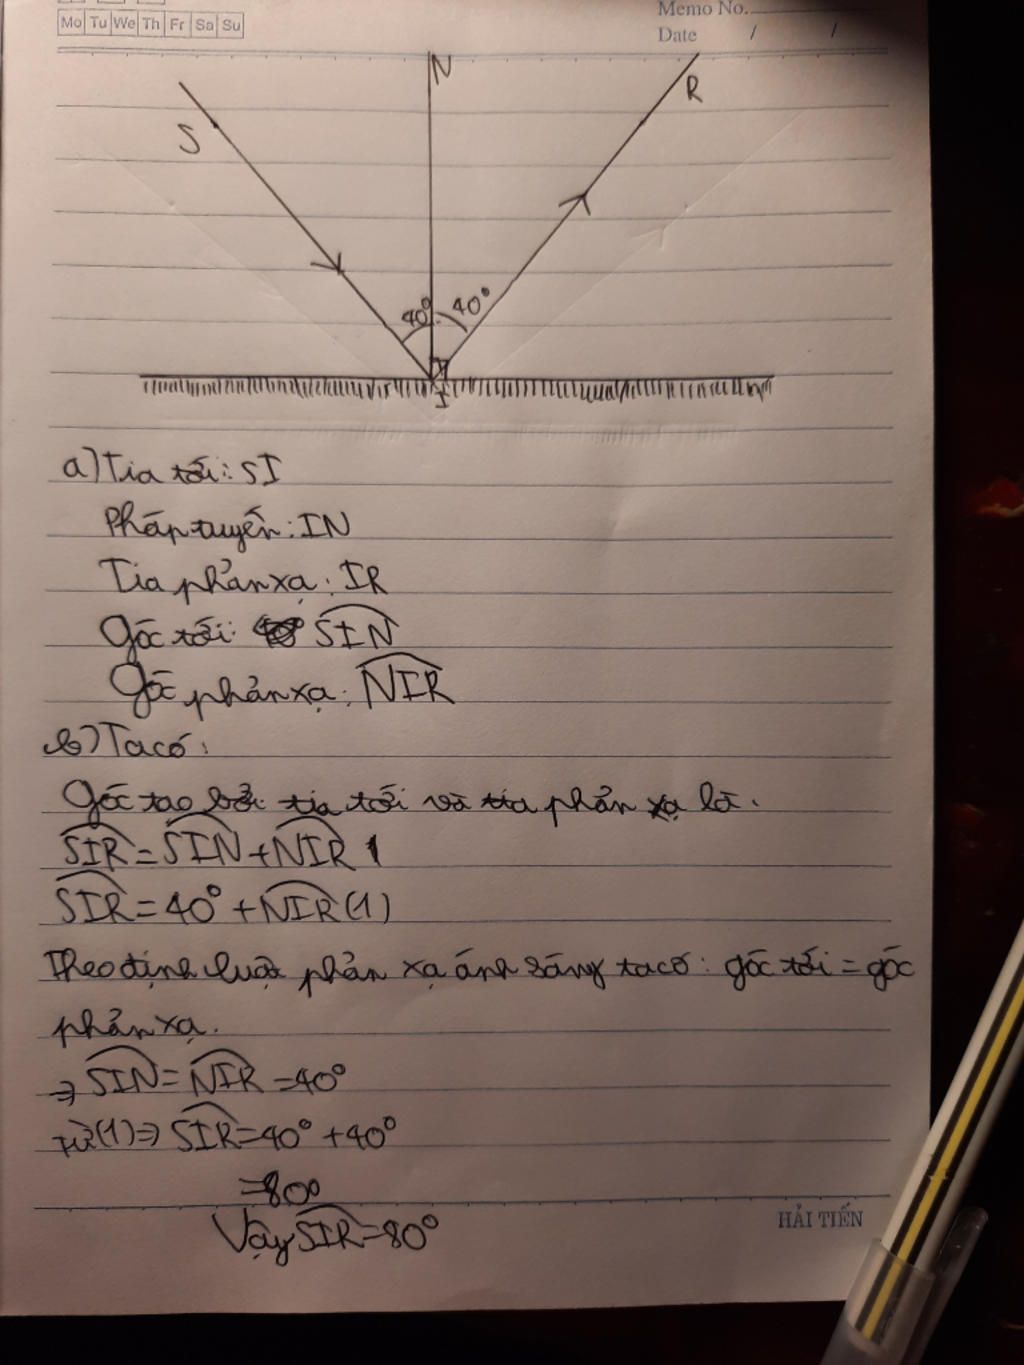 Mo Tu We Th Fr Sa Su
Memo No.
Date / /
N
R
S
40° 40°
I
a) Tia tới: SI
Pháp tuyến: IN
Tia phản xạ: IR
Góc tới: SIN
Góc phản xạ: NIR
b) Ta có:
Góc tạo bởi tia tới và tia phản xạ là.
SIR = SIN + NIR
SIR = 40° + NIR (1)
Theo định luật phản xạ ánh sáng ta có: góc tới = góc
phản xạ.
⇒ SIN = NIR = 40°
từ (1) ⇒ SIR = 40° + 40°
= 80°
Vậy SIR = 80°
HẢI TIẾN